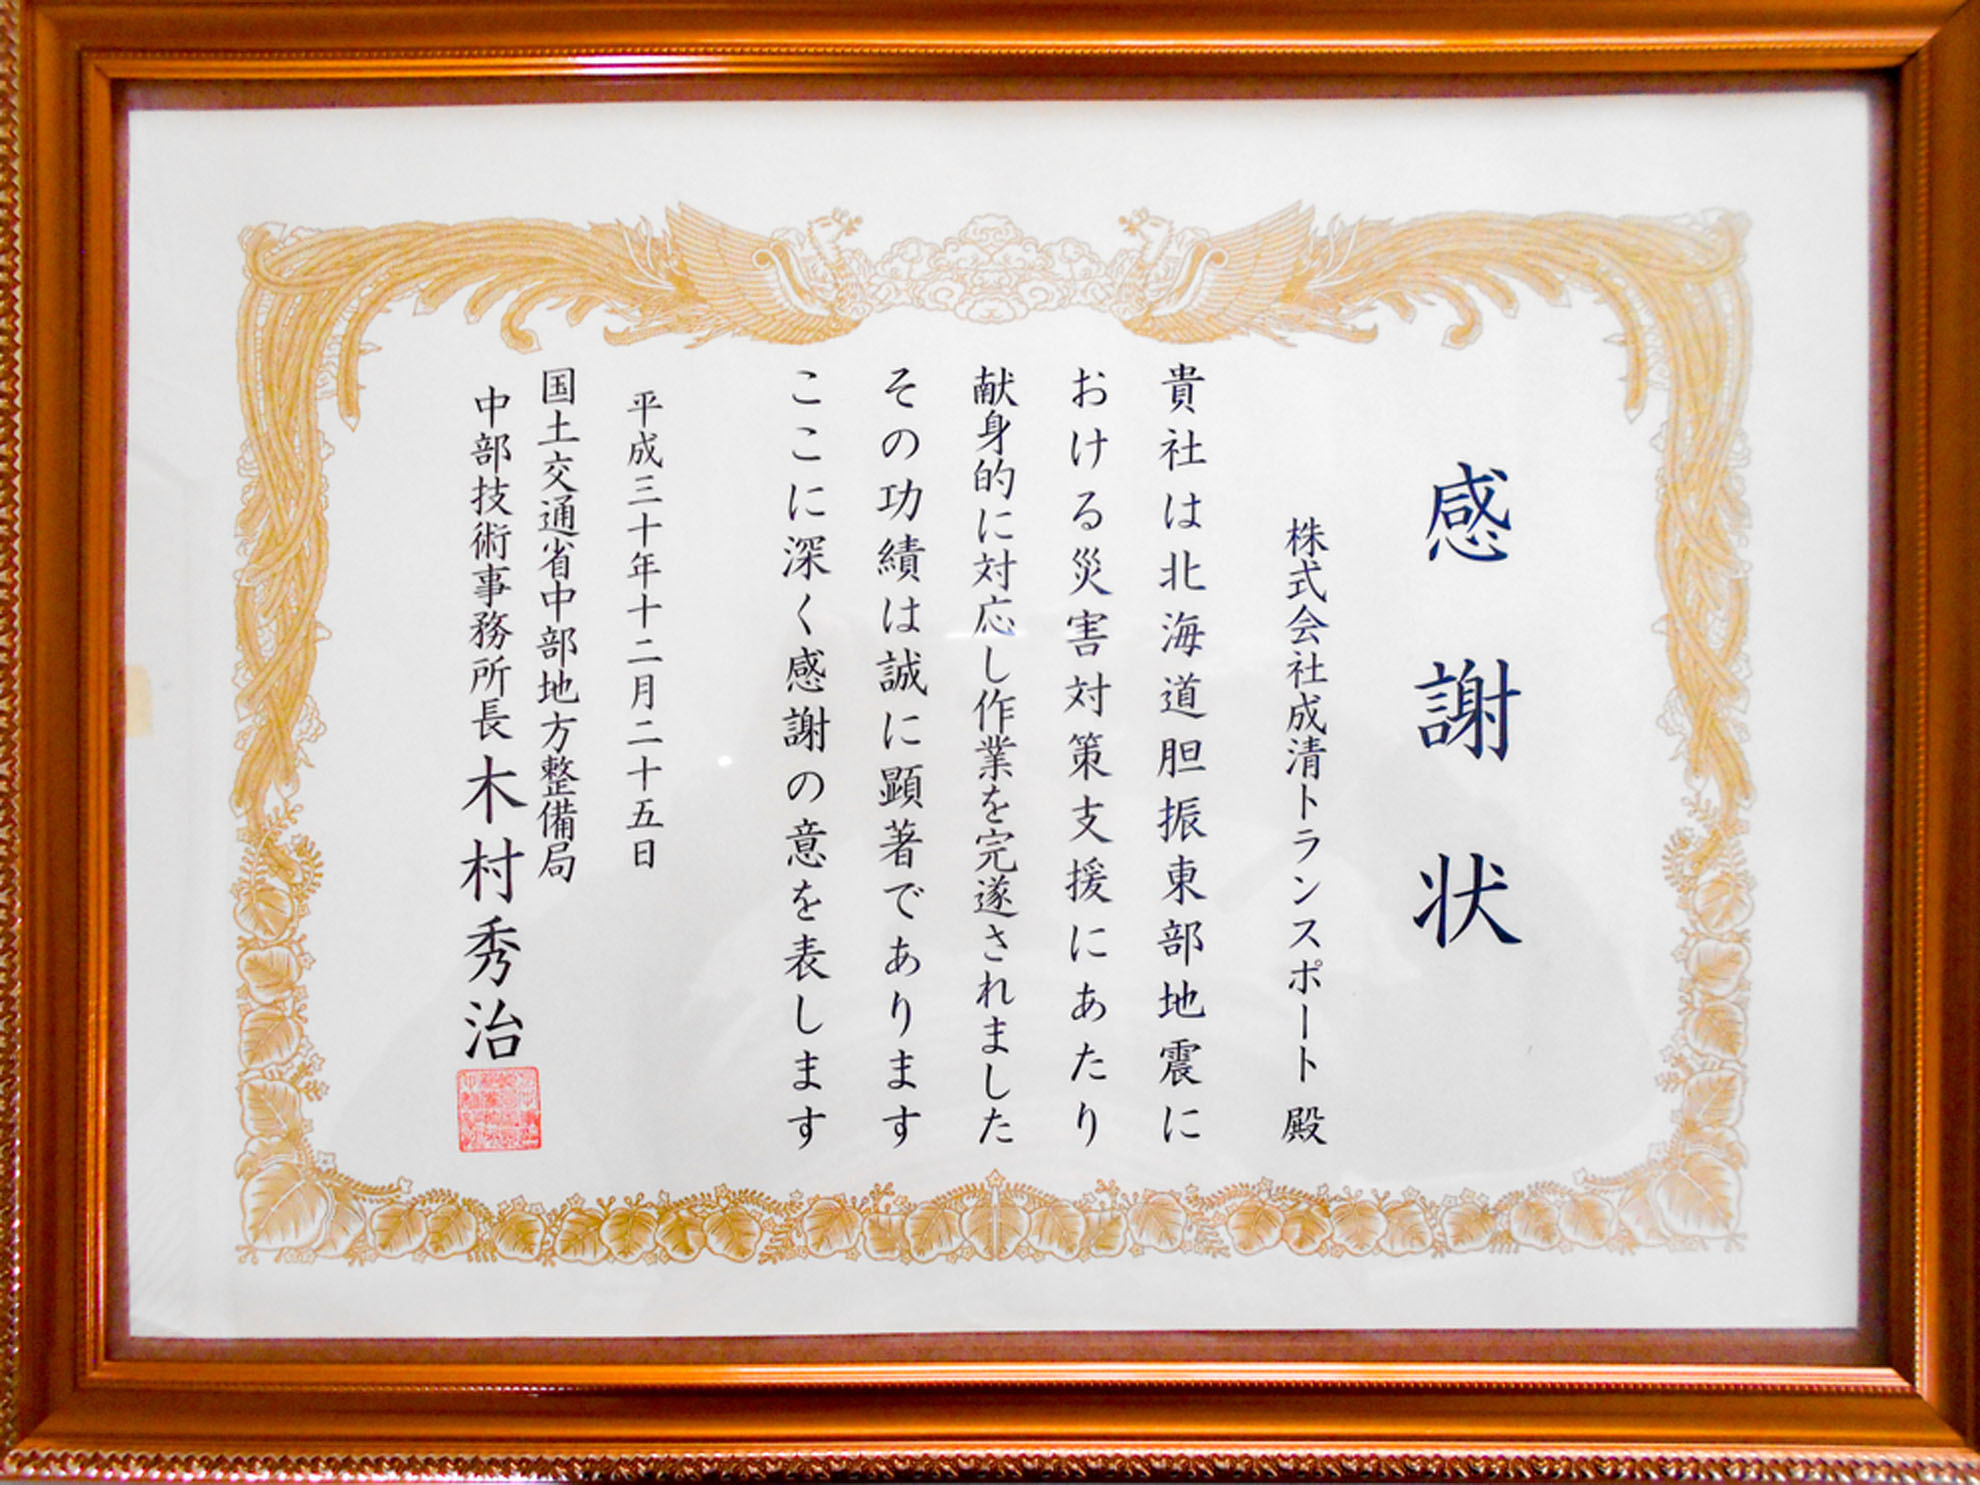 感謝状
株式会社成清トランスポート 殿
貴社は北海道胆振東部地震に
おける災害対策支援にあたり
献身的に対応し作業を完遂されました
その功績は誠に顕著であります
ここに深く感謝の意を表します
平成三十年十二月二十五日
国土交通省中部地方整備局
中部技術事務所長 木村秀治